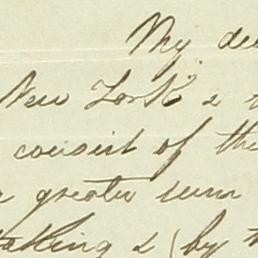 My dea
New York & t
consent of the
greater sum
taking & (by t